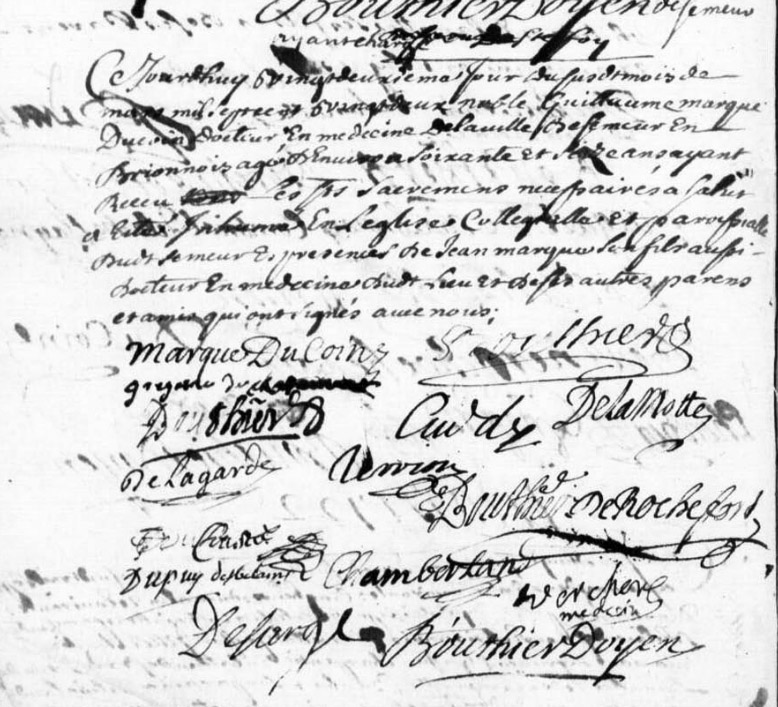 Bouthier Doyen de semeur
ayant charge
Ce Jourdhuy Vvingtdeuxiema Jour du susdt mois de
mars mil sept cet Vvingt deux noble Guillaume marque
Ducoin docteur En medecine Delaville De semeur En
Brionnois agé D'Environ soixante Et seize ans ayant
Receu Les sts sacremens necessaires a salut
a Esté Inhumé En Leglise Collegialle Et parroissialle
Dudt semeur Es presences De Jean marque son fils aussi
docteur En medecine Dudt Lieu Et de ses autres parens
et amis qui ont signés avec nous.
Marque DuCoin Bouthier
gregaine
Bouthier Cudy DeLaMotte
DeLagarde Verrion
Bouthier DeRochefort
Dupuy Chamberland
Verchere
medecin
Desargle Bouthier Doyen